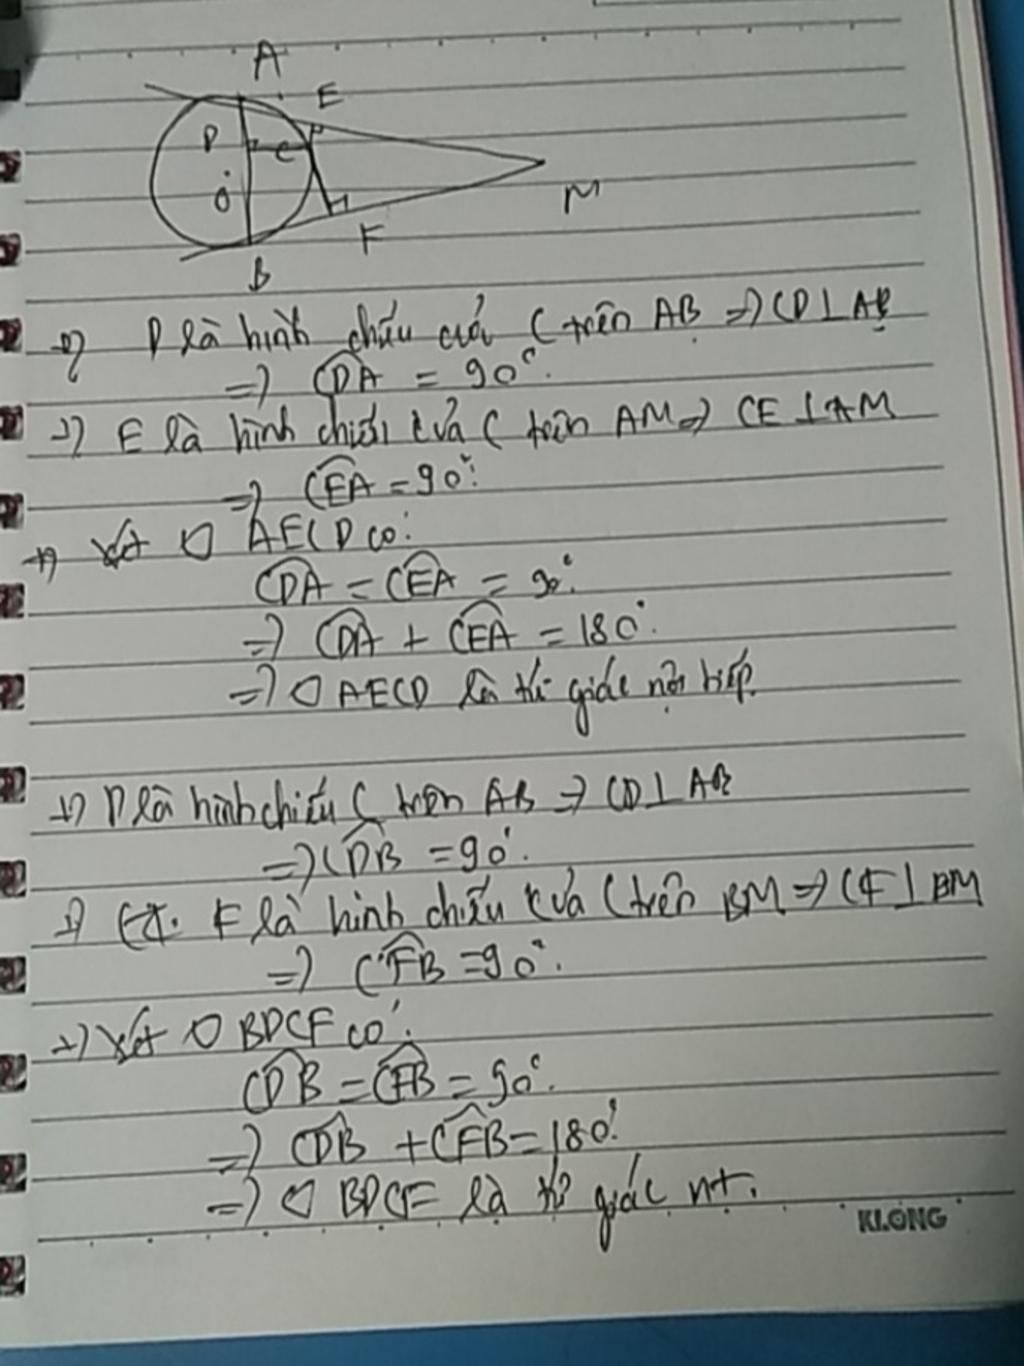 A
E
D
C
O
M
F
B
+) D là hình chiếu của C trên AB => CD⊥AB
=> CDA = 90°.
+) E là hình chiếu của C trên AM => CE⊥AM
=> CEA = 90°.
+) Xét ◊ AECD có:
CDA = CEA = 90°.
=> CDA + CEA = 180°.
=> ◊ AECD là tứ giác nội tiếp.
+) D là hình chiếu C trên AB => CD⊥AB
=> CDB = 90°.
+) F là hình chiếu của C trên BM => CF⊥BM
=> CFB = 90°.
+) Xét ◊ BDCF có:
CDB = CFB = 90°.
=> CDB + CFB = 180°.
=> ◊ BDCF là tứ giác nt.
KLONG